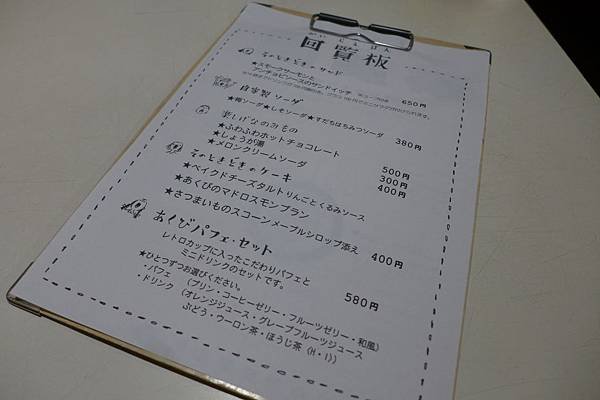 かいらんばん
回覧板
そのときどきのサンド
★スモークサーモンと
アンチョビソースのサンドイッチ
650円
自家製ソーダ
★梅ソーダ★しそソーダ★すだちはちみつソーダ
380円
楽しげなのみもの
★ふわふわホットチョコレート
500円
★しょうが湯
300円
★メロンクリームソーダ
400円
そのときどきのケーキ
★ベイクドチーズタルトりんごとくるみソース
★あくびのマドロスモンブラン
★さつまいものスコーンメープルシロップ添え
400円
あくびパフェ・セット
レトロカップに入ったこだわりパフェと
ミニドリンクのセットです。
580円
★ひとつずつお選びください。
・パフェ （プリン・コーヒーゼリー・フルーツゼリー・和風）
・ドリンク （オレンジジュース・グレープフルーツジュース
ぶどう・ウーロン茶・ほうじ茶（H・I））